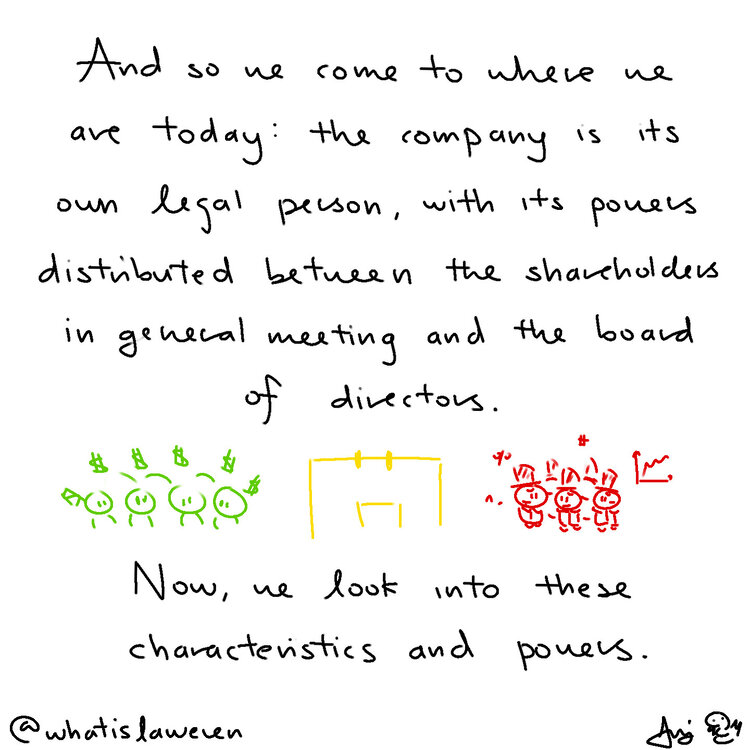 And so we come to where we
are today: the company is its
own legal person, with its powers
distributed between the shareholders
in general meeting and the board
of directors.
Now, we look into these
characteristics and powers.
@whatislaweven